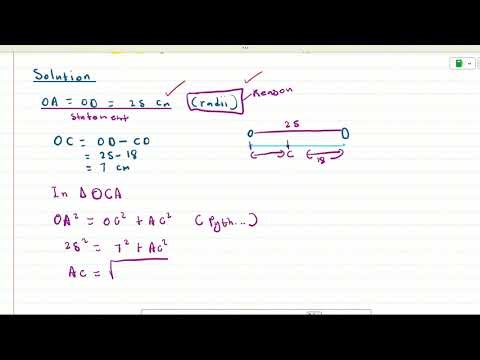 Solution
OA = OD = 25 cm (radii) Reason
Statement
OC = OD - CD
= 25 - 18
= 7 cm
25
O D
C 18
In △OCA
OA² = OC² + AC² (Pyth...)
25² = 7² + AC²
AC = √